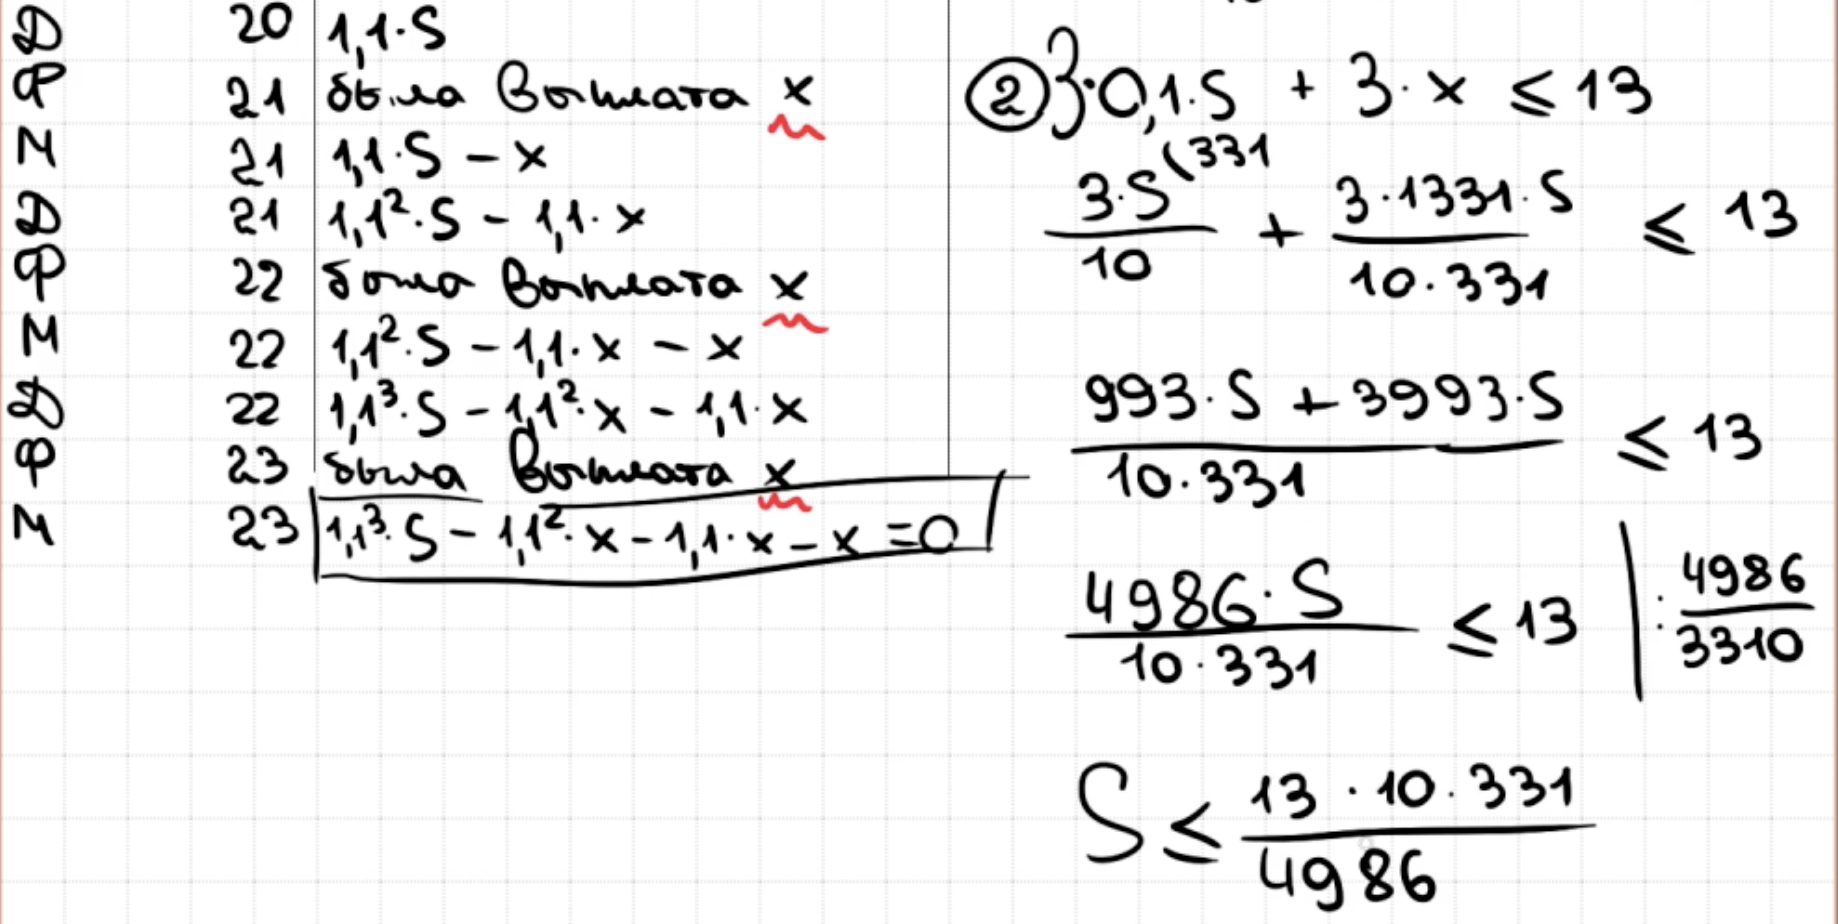 Д 20 1,1·S
Ф 21 была выплата x
М 21 1,1·S - x
Д 21 1,1²·S - 1,1·x
Ф 22 была выплата x
М 22 1,1²·S - 1,1·x - x
Д 22 1,1³·S - 1,1²·x - 1,1·x
Ф 23 была выплата x
М 23 1,1³·S - 1,1²·x - 1,1·x - x = 0
② 3·0,1·S + 3·x ≤ 13
3·S(331/10 + 3·1331·S/10·331 ≤ 13
993·S + 3993·S/10·331 ≤ 13
4986·S/10·331 ≤ 13 | : 4986/3310
S ≤ 13·10·331/4986